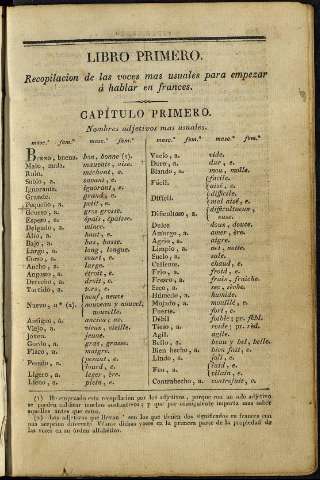 LIBRO PRIMERO.
Recopilacion de las voces mas usuales para empezar
á hablar en frances.
CAPÍTULO PRIMERO.
Nombres adjetivos mas usuales.
masc.º fem.º masc.º fem.º masc.º fem.º masc.º fem.º
Bueno, buena. bon, bonne (1).
Malo, mala.
Ruin. méchant, e.
Sabio, a. savant, e.
Ignorante. ignorant, e.
Grande. grand, e.
Pequeño, a. petit, e.
Grueso, a. gros grosse.
Espeso, a. épais, épaisse.
Delgado, a. mince.
Alto, a. haut, e.
Bajo, a. bas, basse.
Largo, a. long, longue.
Corto, a. court, e.
Ancho, a. large.
Angosto, a. étroit, e.
Derecho, a. droit, e.
Torcido, a. tors, e.
Nuevo, a (2). neuf, neuve
nouveau y nouvel,
nouvelle.
Antiguo, a. ancien, ne.
Viejo, a. vieux, vieille.
Joven. jeune.
Gordo, a. gras, grasse.
Flaco, a. maigre.
Pesado, a. pesant, e.
lourd, e.
Ligero, a. leger, ère.
Lleno, a. plein, e.
Vacío, a. vide.
Duro, a. dur, e.
Blando, a. mou, molle.
Fácil. facile.
aisé, e.
Difícil. difficile.
mal aisé, e.
Dificultoso, a. difficultueux,
euse.
Dulce doux, douce.
Amargo, a. amer, ère.
Agrio, a. aigre.
Limpio, a. net, nette.
Sucio, a. sale.
Caliente. chaud, e.
Frio, a. froid, e.
Fresco, a. frais, fraiche.
Seco, a. sec, sèche.
Húmedo, a. humide.
Mojado, a. mouillé, e.
Fuerte. fort, e.
Débil faible; pr. fébl.
Tieso, a. roide; pr. réd.
Ágil. agile.
Bello, a. beau y bel, belle.
Bien hecho, a. bien fait, e.
Lindo, a. joli, e.
Feo, a. laid, e.
vilain, e.
Contrahecho, a. contrefait, e.
(1) He empezado esta recopilacion por los adjetivos, porque con un solo adjetivo
se pueden calificar muchos sustantivos; y que por consiguiente importa mas saber
aquellos antes que estos.
(2) Los adjetivos que llevan * son los que tienen dos significados en frances con
una acepcion diferente. Véanse dichas voces en la primera parte de la propiedad de
las voces en su órden alfabético.